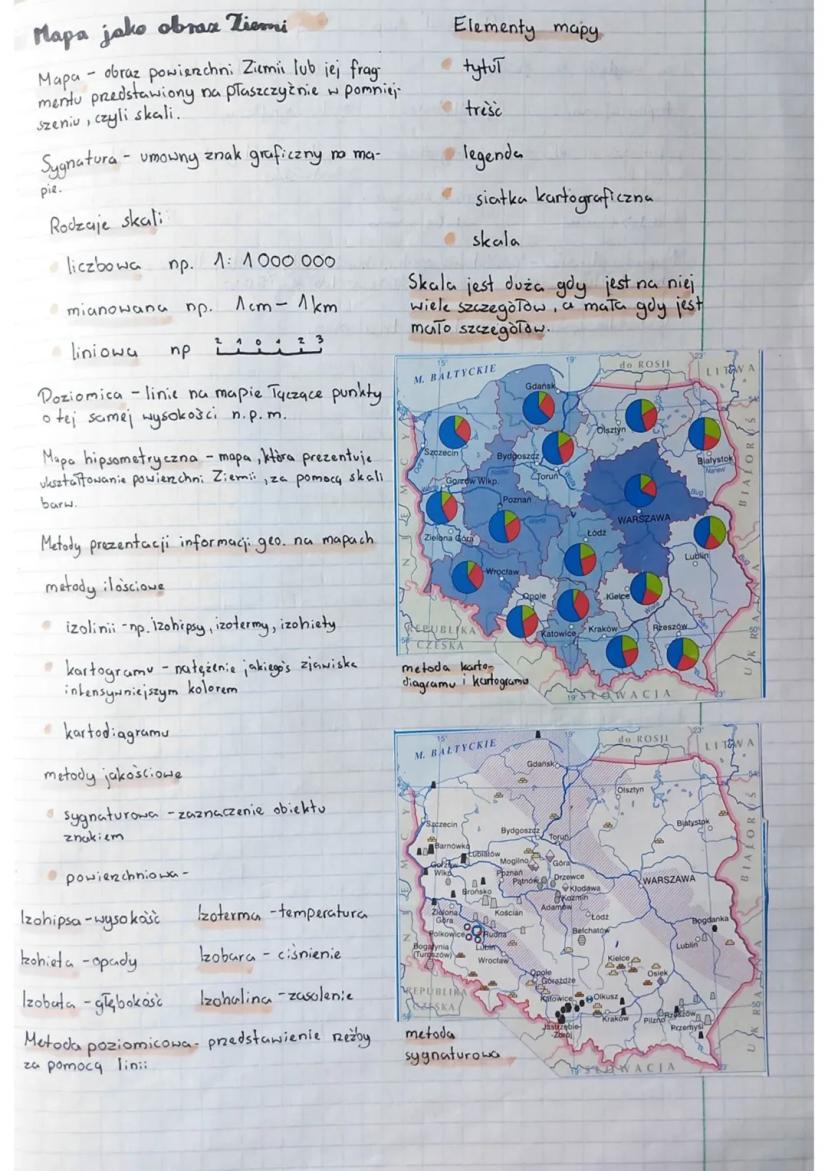 Mapa jako obraz Ziemi
Mapa - obraz powierzchni Ziemii lub jej frag-
mentu przedstawiony na płaszczyźnie w pomniej-
szeniu, czyli skali.
Sygnatura - umowny znak graficzny na ma-
pie.
Rodzaje skali
liczbowa np. 1: 1 000 000
mianowana np. 1cm - 1km
liniowa np 2 1 0 1 2 3
Poziomica - linie na mapie łączące punkty
o tej samej wysokości n.p.m.
Mapa hipsometryczna - mapa, która prezentuje
ukształtowanie powierzchni Ziemii, za pomocą skali
barw.
Metody prezentacji informacji geo. na mapach
metody ilościowe
izolinii - np. izohipsy, izotermy, izohiety
kartogramu - natężenie jakiegoś zjawiska
intensywniejszym kolorem
kartodiagramu
metody jakościowe
sygnaturowa - zaznaczenie obiektu
znakiem
powierzchniowa -
Izohipsa - wysokość Izoterma - temperatura
Izohieta - opady Izobara - ciśnienie
Izobata - głębokość Izohalina - zasolenie
Metoda poziomicowa - przedstawienie rzeźby
za pomocą linii
Elementy mapy
tytuł
treść
legenda
siatka kartograficzna
skala
Skala jest duża gdy jest na niej
wiele szczegółów, a mała gdy jest
mało szczegółów.
15° 19° do ROSJI 23°
M. BAŁTYCKIE
LITWA
Gdańsk
Olsztyn
Szczecin
Bydgoszcz
Białystok
Toruń
Gorzów Wlkp.
Poznań
WARSZAWA
Zielona Góra
Łódź
Lublin
Wrocław
Opole
Kielce
Katowice
Kraków
Rzeszów
NIEMCY
BIAŁORUŚ
UKRAINA
REPUBLIKA
CZESKA
19° SŁOWACJA 23°
metoda karto-
diagramu i kartogramu
15° 19° do ROSJI 23°
M. BAŁTYCKIE
LITWA
Gdańsk
Olsztyn
Szczecin
Bydgoszcz
Białystok
Toruń
Barnówko
Lubiatów
Gorzów
Wlkp.
Mogilno
Góra
Poznań
Pątnów
Drzewce
WARSZAWA
Kłodawa
Brońsko
Koźmin
Adamów
Zielona
Góra
Kościan
Łódź
Bogdanka
Polkowice
Rudna
Bełchatów
Lubin
Lublin
Bogatynia
(Turoszów)
Wrocław
Kielce
Opole
Osiek
Górażdże
Katowice
Olkusz
Kraków
Pilzno
Rzeszów
Jastrzębie-
Zdrój
Przemyśl
NIEMCY
BIAŁORUŚ
UKRAINA
REPUBLIKA
CZESKA
19° SŁOWACJA 23°
metoda
sygnaturowa